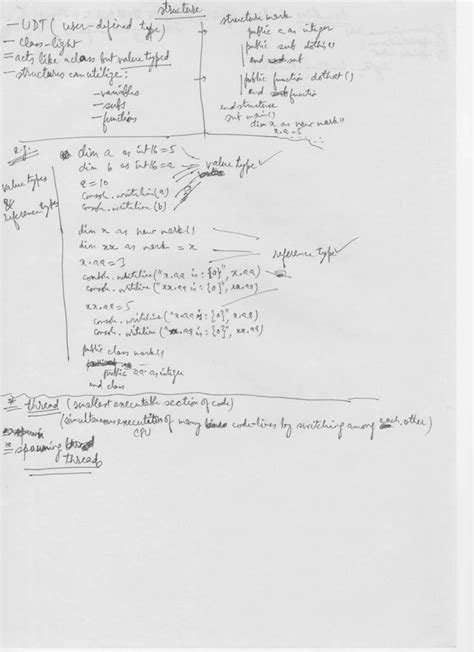 structure
- UDT (user-defined type)
- class-light
= acts like a class but value typed
- structures can utilize:
- variables
- subs
- functions
structure mark
public a as integer
public sub dothis()
end sub
public function dothat()
end function
end structure
sub main()
dim x as new mark()
x.a=5
e.g.
value types
&
reference types
dim a as int16=5
dim b as int16=a
value type
a = 10
console.writeline(a)
console.writeline(b)
dim x as new mark()
dim xx as mark = x
reference type
x.aa=3
console.writeline("x.aa is : {0}", x.aa)
console.writeline("xx.aa is : {0}", xx.aa)
xx.aa=5
console.writeline("x.aa is : {0}", x.aa)
console.writeline("xx.aa is : {0}", xx.aa)
public class mark()
public aa as integer
end class
* thread (smallest executable section of code)
(simultaneous execution of many code-lines by switching among each other)
CPU
= spawning
thread